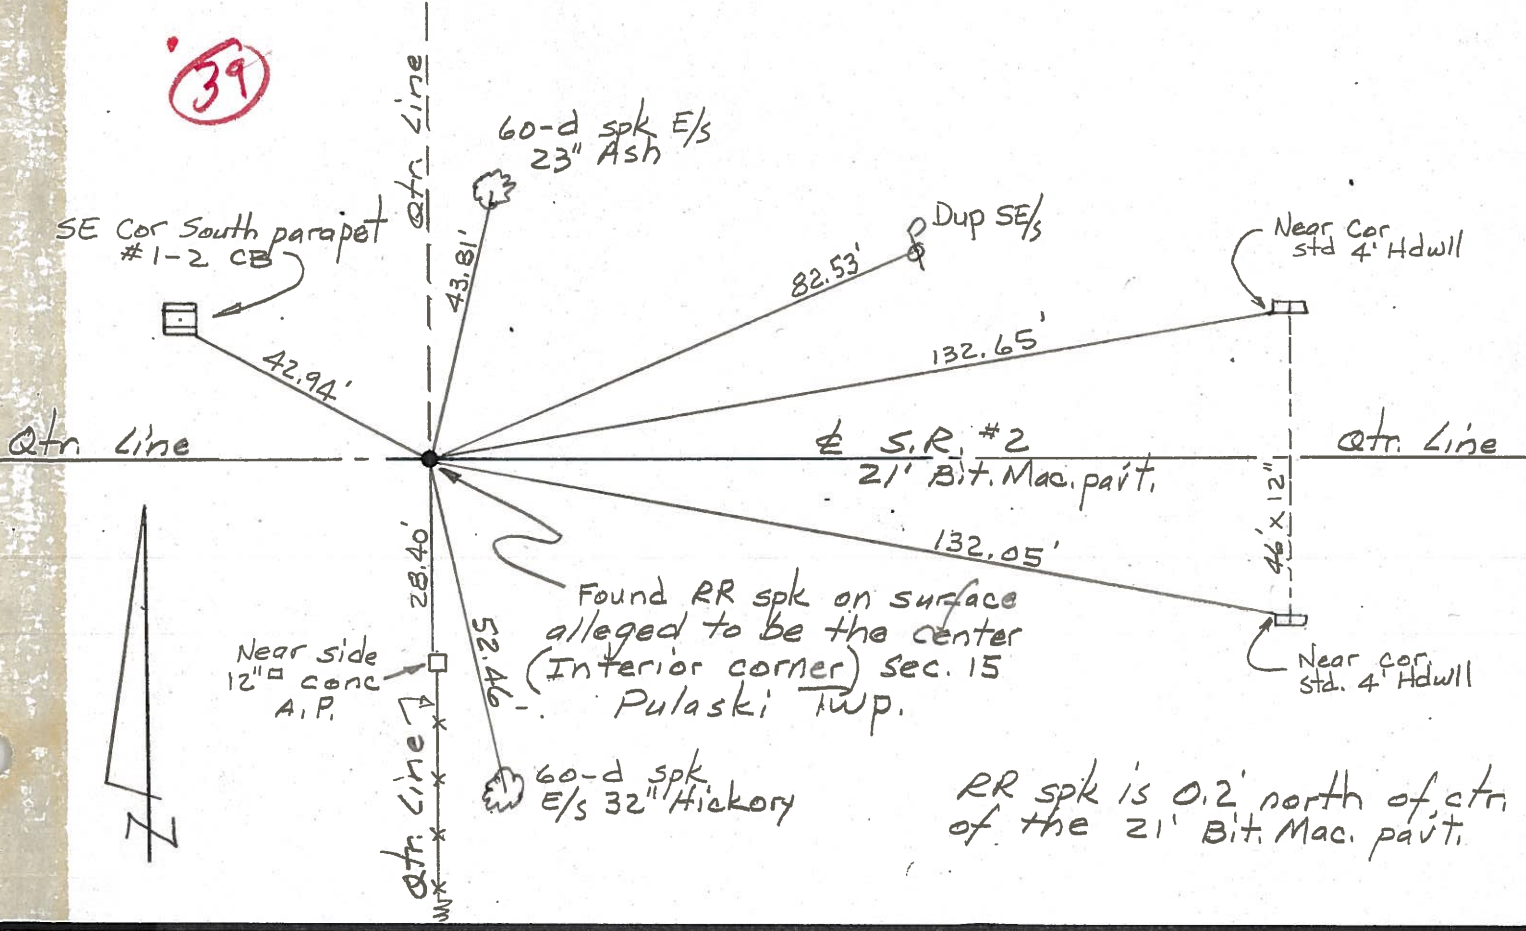 39
Qtr. Line
60-d spk E/s
23" Ash
SE Cor South parapet
#1-2 CB
43.81'
Dup SE/s
82.53'
Near Cor
std 4' Hdwll
42.94'
132.65'
Qtr. Line
℄ S.R. #2
21' Bit. Mac. pav't.
Qtr. Line
46' X 12"
28.40'
132.05'
Found RR spk on surface
alleged to be the center
(Interior corner) sec. 15
Pulaski Twp.
52.46
Near side
12"□ conc
A.P.
Near cor
std. 4' Hdwll
Qtr. Line
60-d spk
E/s 32" Hickory
RR spk is 0.2' north of ctr.
of the 21' Bit. Mac. pav't.
N